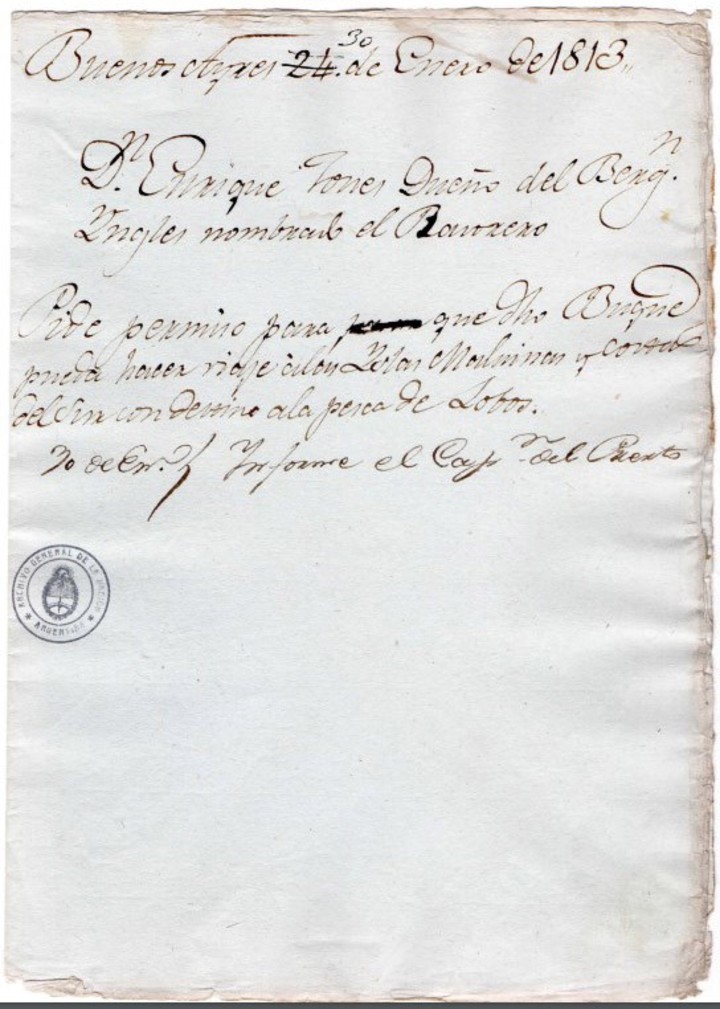 Buenos Ayres 24. 30 de Enero de 1813,,
Dn. Enrique Jones Dueño del Bergn.
Yngles nombrado el Rastrero
Pide permiso para que dho Buque
pueda hacer viaje á las Yslas Malvinas y costas
del Sur con destino a la pesca de Lobos.
30 de En.o Informe el Capn. del Puerto
ARCHIVO GENERAL DE LA NACION
ARGENTINA